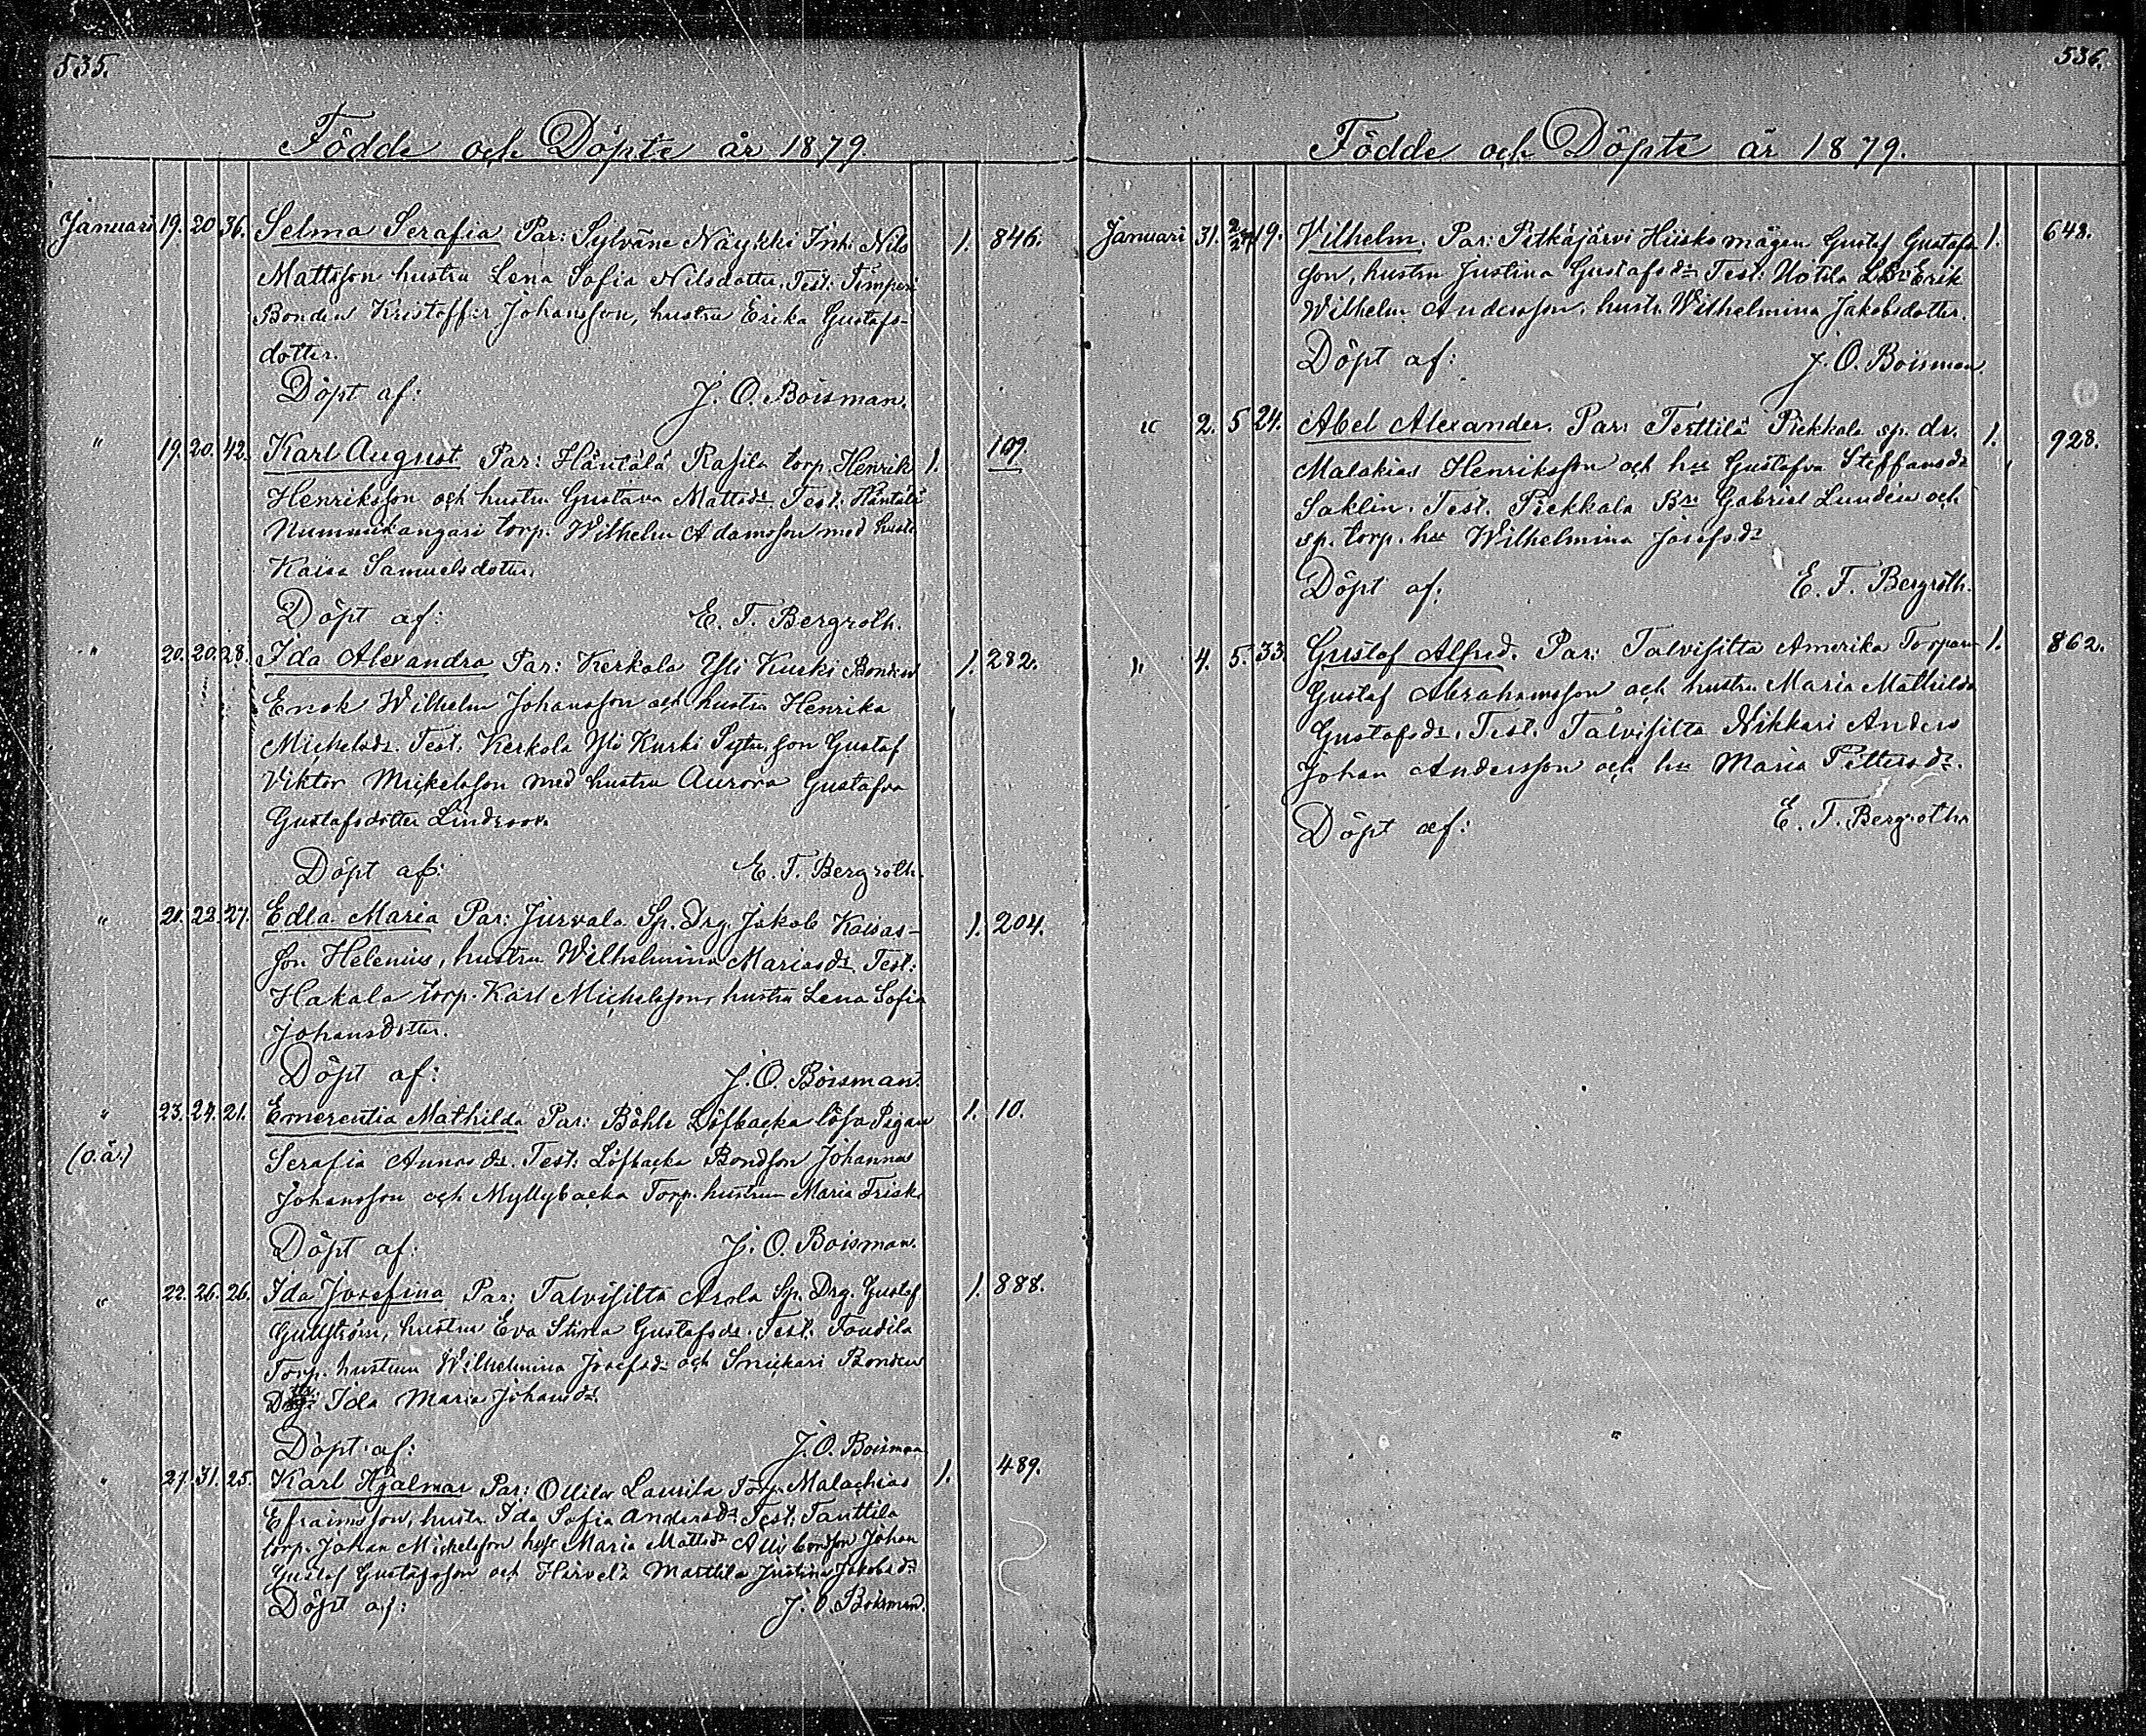 535.
Födde och Döpte år 1879.
Januari 19. 20 36. Selma Serafia Par: Sylväne Näykki Inh. Nils 1. 846.
Mattsson hustru Lena Sofia Nilsdotter. Test: Timperi
Bonden Kristoffer Johansson, hustru Erika Gustafs-
dotter.
Döpt af: J. O. Boisman.
" 19. 20. 42. Karl August Par: Häntälä Rasila torp. Henrik 1. 109.
Henriksson och hustru Gustava Mattsdr. Test. Häntälä
Nummikangari torp. Wilhelm Adamsson med hustr.
Kaisa Samuelsdotter.
Döpt af: E. T. Bergroth.
" 20. 20. 28. Ida Alexandra Par: Kerkola Yli Kurki Bonden 1. 282.
Enok Wilhelm Johansson och hustru Henrika
Michelsdr. Test. Kerkola Yli Kurki Sytn. son Gustaf
Viktor Mickelsson med hustru Aurora Gustafva
Gustafsdotter Lindroos.
Döpt af: E. T. Bergroth.
" 21. 22. 27. Edla Maria Par: Jurvala Sp. Drg. Jakob Kaisas- 1. 204.
son Helenius, hustru Wilhelmina Mariasdr. Test:
Hakala torp. Karl Michelsson, hustru Lena Sofia
Johansdotter.
Döpt af: J. O. Boisman.
" 23. 24. 21. Emerentia Mathilda Par: Böhle Löfbacka lösa Pigan 1. 10.
(o.ä.) Serafia Annasdr. Test: Löfbacka Bondson Johannes
Johansson och Myllybacka Torp. hustrun Maria Frisk.
Döpt af: J. O. Boisman.
" 22. 26. 26. Ida Josefina Par: Talvisilta Arola Sp. Drg. Gustaf 1. 888.
Gullström, hustru Eva Stina Gustafsdr. Test. Toudila
Torp. hustrun Wilhelmina Josefsdr och Snickari Bonden
Dtr: Ida Maria Johansdr.
Döpt af: J. O. Boisman
" 27. 31. 25. Karl Hjalmar Par: Ollila Laurila Torp. Malachias 1. 489.
Efraimsson, hustr. Ida Sofia Andersdr. Test. Tanttila
torp. Johan Michelsson hust Maria Mattsdr Alli bondson Johan
Gustaf Gustafsson och Hirvelä Marttila Justina Jakobsdr
Döpt af: J. O. Boisman.
536.
Födde och Döpte år 1879.
Januari 31. 2/2 19. Vilhelm. Par: Pitkäjärvi Hiisko mågen Gustaf Gustafs 1. 648.
son, hustru Justina Gustafsdr Test: Uotila Erik
Wilhelm Andersson, hustr. Wilhelmina Jakobsdotter.
Döpt af: J. O. Boisman.
" 2. 5 24. Abel Alexander. Par: Terttilä Piekkala sp. dr. 1. 928.
Malakias Henriksson och hu Gustafva Steffansdr
Saklin. Test. Piekkala Bn Gabriel Lundén och
sp. torp. hu Wilhelmina Josefsdr
Döpt af: E. T. Bergroth.
" 4. 5. 33 Gustaf Alfred. Par: Talvisilta Amerika Torparen 1. 862.
Gustaf Abrahamsson och hustru Maria Mathilda
Gustafsdr. Test. Talvisilta Nikkari Anders
Johan Andersson och hu Maria Pettersdr.
Döpt af: E. T. Bergroth